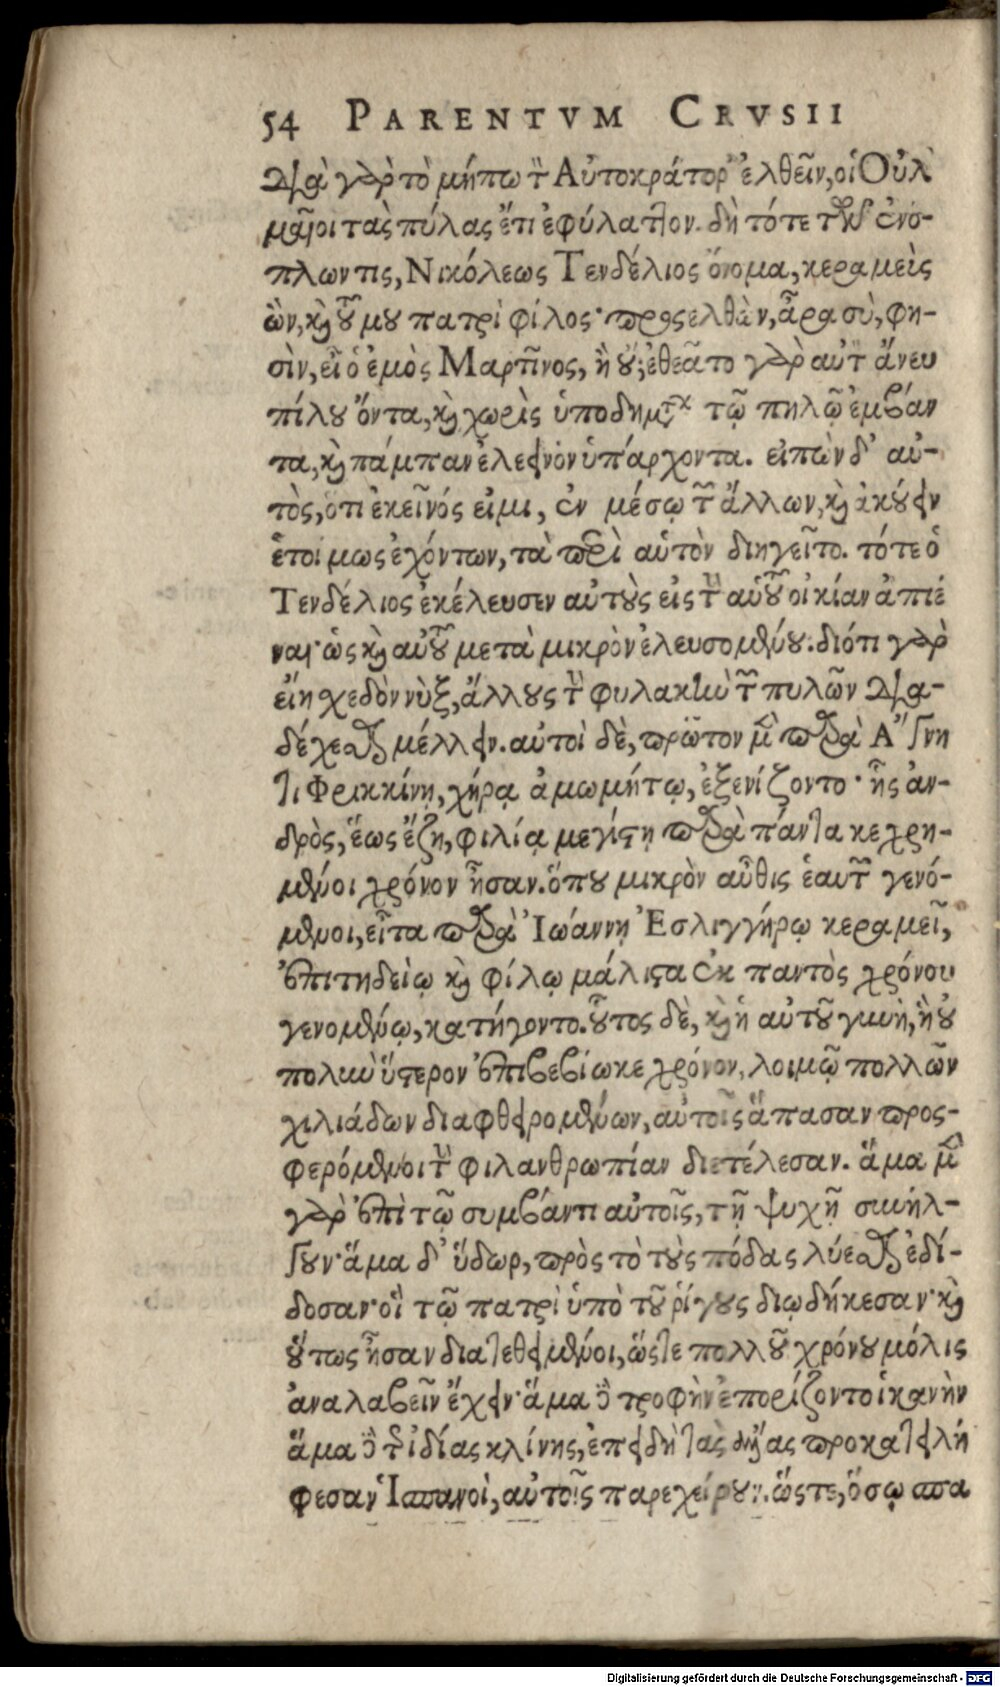 54 PARENTVM CRVSII
διὰ γὰρ τὸ μήπω τὸν Αὐτοκράτορ' ἐλθεῖν, οἱ Οὐλ
μαῖοι τὰς πύλας ἔτι ἐφύλαττον. δὴ τότε τῶν ἐνό-
πλων τις, Νικόλεως Τενδέλιος ὄνομα, κεραμεὺς
ὢν, καὶ τοῦ μου πατρὶ φίλος· προσελθὼν, ἆρα σὺ, φη-
σὶν, εἶ ὁ ἐμὸς Μαρτῖνος, ἢ οὔ; ἐθεᾶτο γὰρ αὐτὸν ἄνευ
πίλου ὄντα, καὶ χωρὶς ὑποδημάτων τῷ πηλῷ ἐμβάν
τα, καὶ πάμπαν ἐλεεινὸν ὑπάρχοντα. εἰπὼν δ' αὐ-
τὸς, ὅτι ἐκεῖνός εἰμι, ἐν μέσῳ τῶν ἄλλων, καὶ ἀκούειν
ἑτοίμως ἐχόντων, τὰ περὶ αὑτὸν διηγεῖτο. τότε ὁ
Τενδέλιος ἐκέλευσεν αὐτοὺς εἰς τὴν αὑτοῦ οἰκίαν ἀπιέ
ναι· ὡς καὶ αὐτοῦ μετὰ μικρὸν ἐλευσομένου: διότι γὰρ
εἴη σχεδὸν νὺξ, ἄλλους τὴν φυλακὴν τῶν πυλῶν δια-
δέχεσθαι μέλλειν. αὐτοὶ δὲ, πρῶτον μὲν παρὰ Ἄγνη
τι Φρικκίνῃ, χήρᾳ ἀμωμήτῳ, ἐξενίζοντο· ἧς ἀν-
δρὸς, ἕως ἔζη, φιλίᾳ μεγίστῃ παρὰ πάντα κεχρη-
μένοι χρόνον ἦσαν. ὅπου μικρὸν αὖθις ἑαυτῶν γενό-
μενοι, εἶτα παρὰ Ἰωάννῃ Ἐσλιγγήρῳ κεραμεῖ,
ἐπιτηδείῳ καὶ φίλῳ μάλιστα ἐκ παντὸς χρόνου
γενομένῳ, κατήγοντο. οὗτος δὲ, καὶ ἡ αὐτοῦ γυνὴ, ἣ οὐ
πολὺν ὕστερον ἐπιβεβίωκε χρόνον, λοιμῷ πολλῶν
χιλιάδων διαφθειρομένων, αὐτοῖς ἅπασαν προς-
φερόμενοι τὴν φιλανθρωπίαν διετέλεσαν. ἅμα μὲν
γὰρ ἐπὶ τῷ συμβάντι αὐτοῖς, τῇ ψυχῇ συνήλ-
γουν· ἅμα δ' ὕδωρ, πρὸς τὸ τοὺς πόδας λύεσθαι ἐδί-
δοσαν· οἳ τῷ πατρὶ ὑπὸ τοῦ ῥίγους διῳδήκεσαν· καὶ
οὕτως ἦσαν διατεθειμένοι, ὥστε πολλοῦ χρόνου μόλις
ἀναλαβεῖν ἔχειν· ἅμα δὲ τροφὴν ἐπορίζοντο ἱκανὴν
ἅμα δὲ τῆς ἰδίας κλίνης, ἐπειδὴ τὰς εὐνὰς προκατειλή
φεσαν Ἱσπανοὶ, αὐτοῖς παρεχώρουν. ὥστε, ὅσῳ σπα
Digitalisierung gefördert durch die Deutsche Forschungsgemeinschaft - DFG